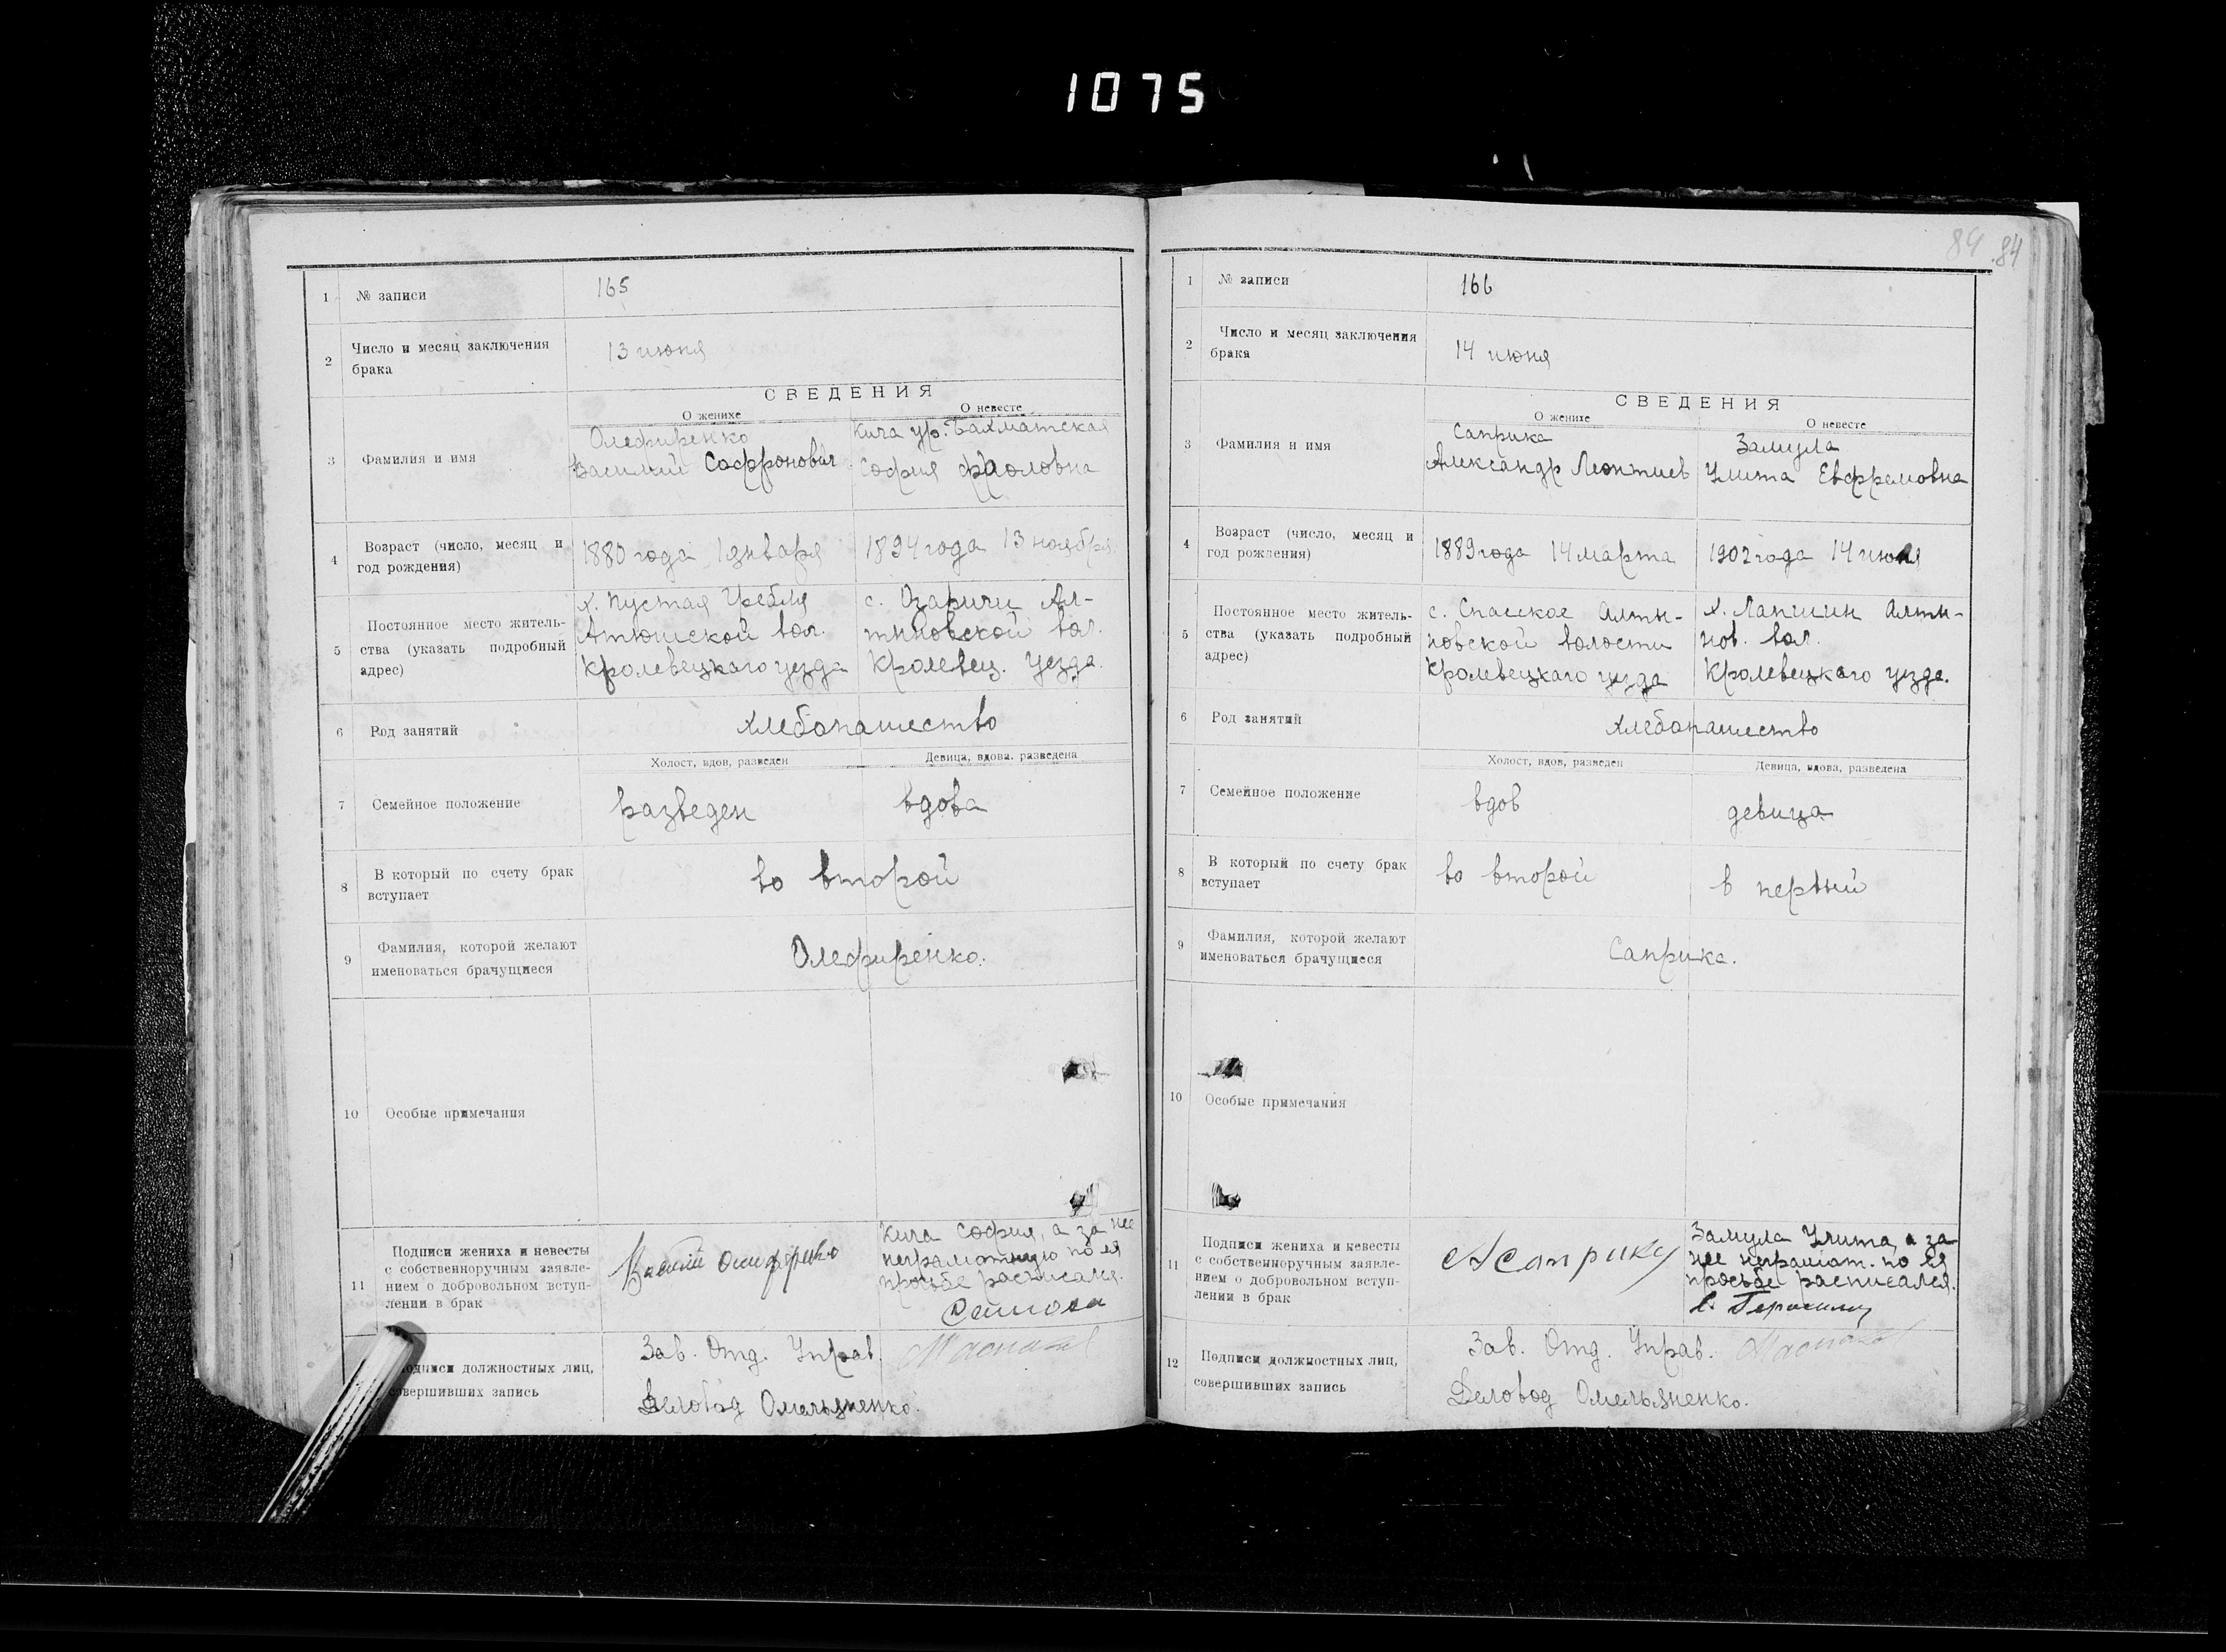 1075
1 № записи 165
2 Число и месяц заключения
брака
13 июня
СВЕДЕНИЯ
О женихе
О невесте
3 Фамилия и имя
Олефиренко
Василий Софронович
Кича ур. Бахматская
София Фроловна
4 Возраст (число, месяц и
год рождения)
1880 года 1 января
1894 года 13 ноября
5 Постоянное место житель-
ства (указать подробный
адрес)
х. Пустая Гребля
Атюшской вол.
Кролевецкаго уезда
с. Озаричи Ал-
тыновской вол.
Кролевец. уезда.
6 Род занятий
хлебопашество
Холост, вдов, разведен
Девица, вдова, разведена
7 Семейное положение
разведен
вдова
8 В который по счету брак
вступает
во второй
9 Фамилия, которой желают
именоваться брачущиеся
Олефиренко.
10 Особые примечания
11 Подписи жениха и невесты
с собственноручным заявле-
нием о добровольном вступ-
лении в брак
Кича София, а за нее
неграмотную по ея
просьбе расписался.
12 Подписи должностных лиц,
совершивших запись
Зав. Отд. Управ.
Деловод Омельяненко.
84 84
1 № записи 166
2 Число и месяц заключения
брака
14 июня
СВЕДЕНИЯ
О женихе
О невесте
3 Фамилия и имя
Саприка
Александр Леонтиев
Замула
Улита Евфремовна
4 Возраст (число, месяц и
год рождения)
1889 года 14 марта
1902 года 14
5 Постоянное место житель-
ства (указать подробный
адрес)
с. Спасское Алты-
новской волости
Кролевецкаго уезда
х. Лапшин Алты-
нов. вол.
Кролевецкого уезда.
6 Род занятий
хлебопашество
Холост, вдов, разведен
Девица, вдова, разведена
7 Семейное положение
вдов
девица
8 В который по счету брак
вступает
во второй
в первый
9 Фамилия, которой желают
именоваться брачущиеся
Саприка.
10 Особые примечания
11 Подписи жениха и невесты
с собственноручным заявле-
нием о добровольном вступ-
лении в брак
А Саприку
Замула Улита, а за
нее неграмот. по ея
просьбе расписался.
12 Подписи должностных лиц,
совершивших запись
Зав. Отд. Управ.
Деловод Омельяненко.